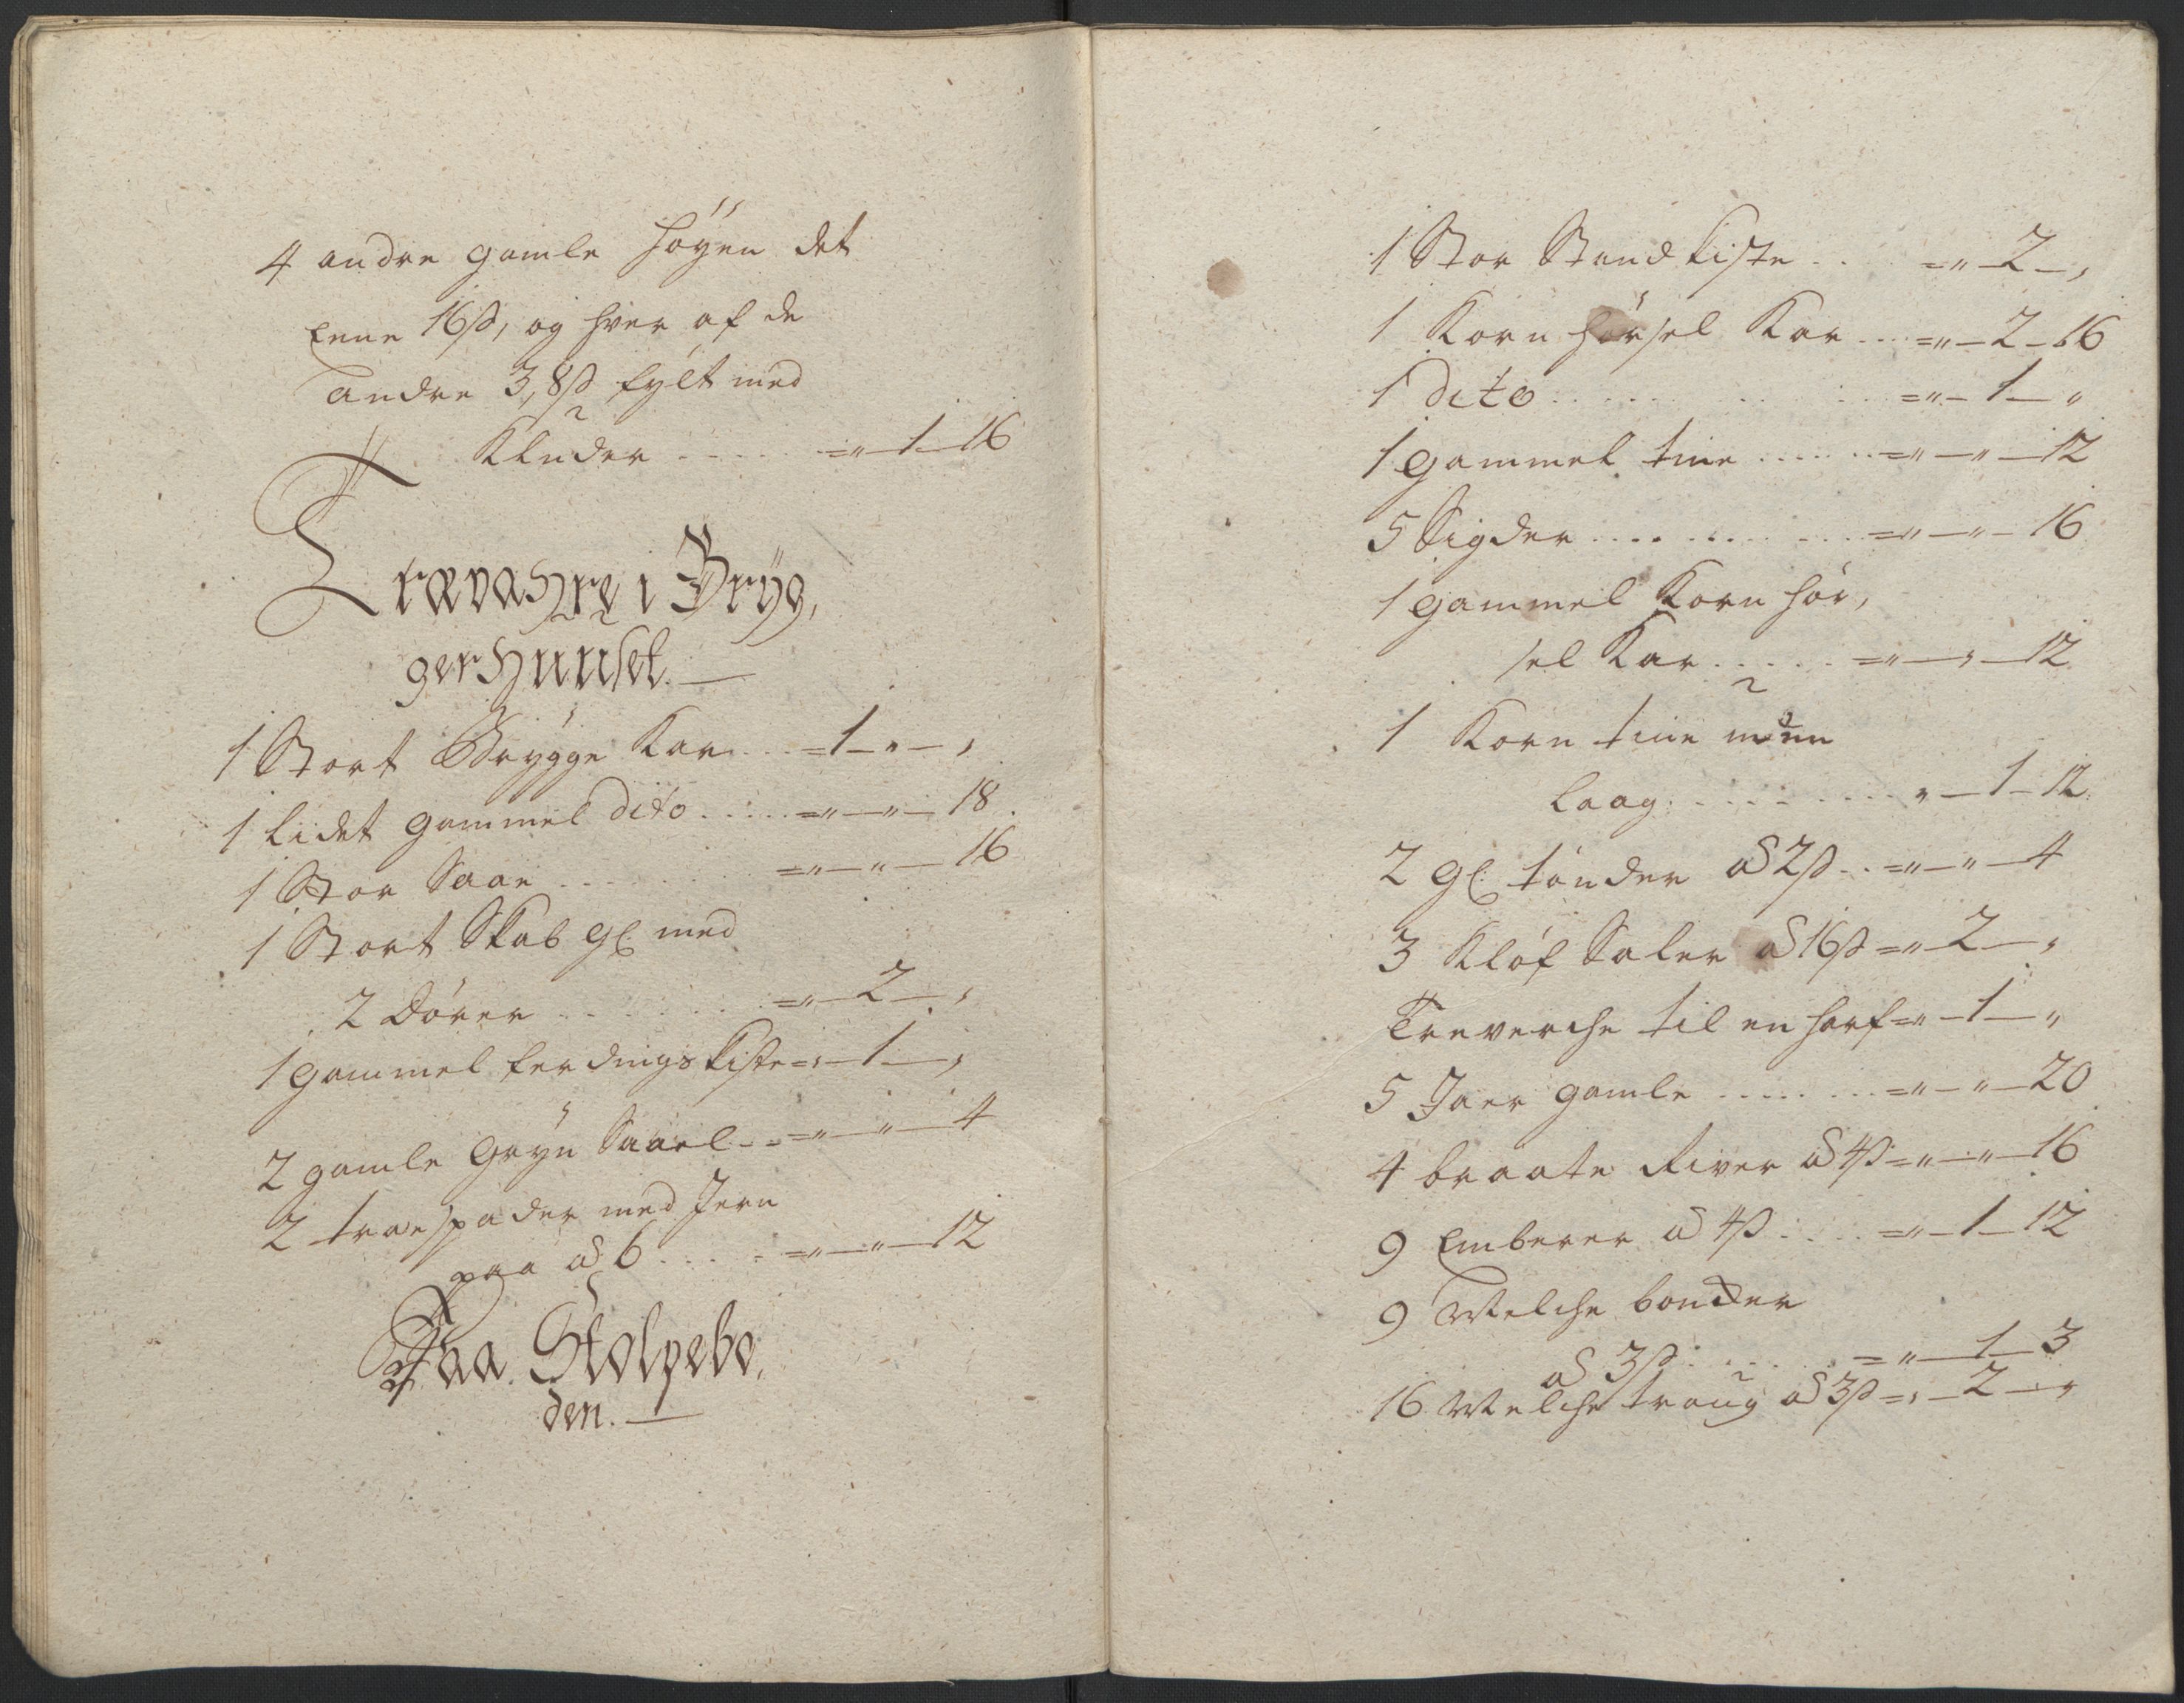 4 andre gamle høyen det
Eene 16ß, og hver af de
andre 3, 8ß fylt med
Kluder ..... = " — 1 — 16
Trævahre i Bryg,
gerHuuset. —
1 Stort Brygge Kar ... = 1 — " — ,
1 lidet gammel dito ..... = " — " — 18.
1 Stor Saae ..... = " — " — 16
1 Stort Skab gl: med
2 Dörer ...... = " — 2 — ,
1 gammel ferdings kiste = , — 1 — ,
2 gamle Gryn Saael .. = " — " — 4
2 træspader med Jern
paa a 6 ..... = " — " — 12
Paa Stolpebo,
den. —
1 Stor Stand kiste .. = " — 2 — ,
1 Korn hörsel Kar ... = " — 2 — 16
1 dito ....... = " — 1 — "
1 gammel tine ...... = " — " — 12
5 Sigder .......... = " — " — 16
1 gammel Korn hör,
sel Kar ..... = " — , — 12
1 Korn tine uden
laag ......... " — 1 — 12
2 gl: tönder a 2ß .. = " — " — 4
3 Kløf Saler a 16ß = " — 2 — ,
Treverche til en harf = " — 1 — "
5 Jaer gamle ...... = " — " — 20
4 braate River a 4ß = " — " — 16
9 Emberer a 4ß .... = " — 1 — 12
9 Melche bonder
a 3ß ...... = " — 1 — 3
16 Melche traug a 3ß = , — 2 — "